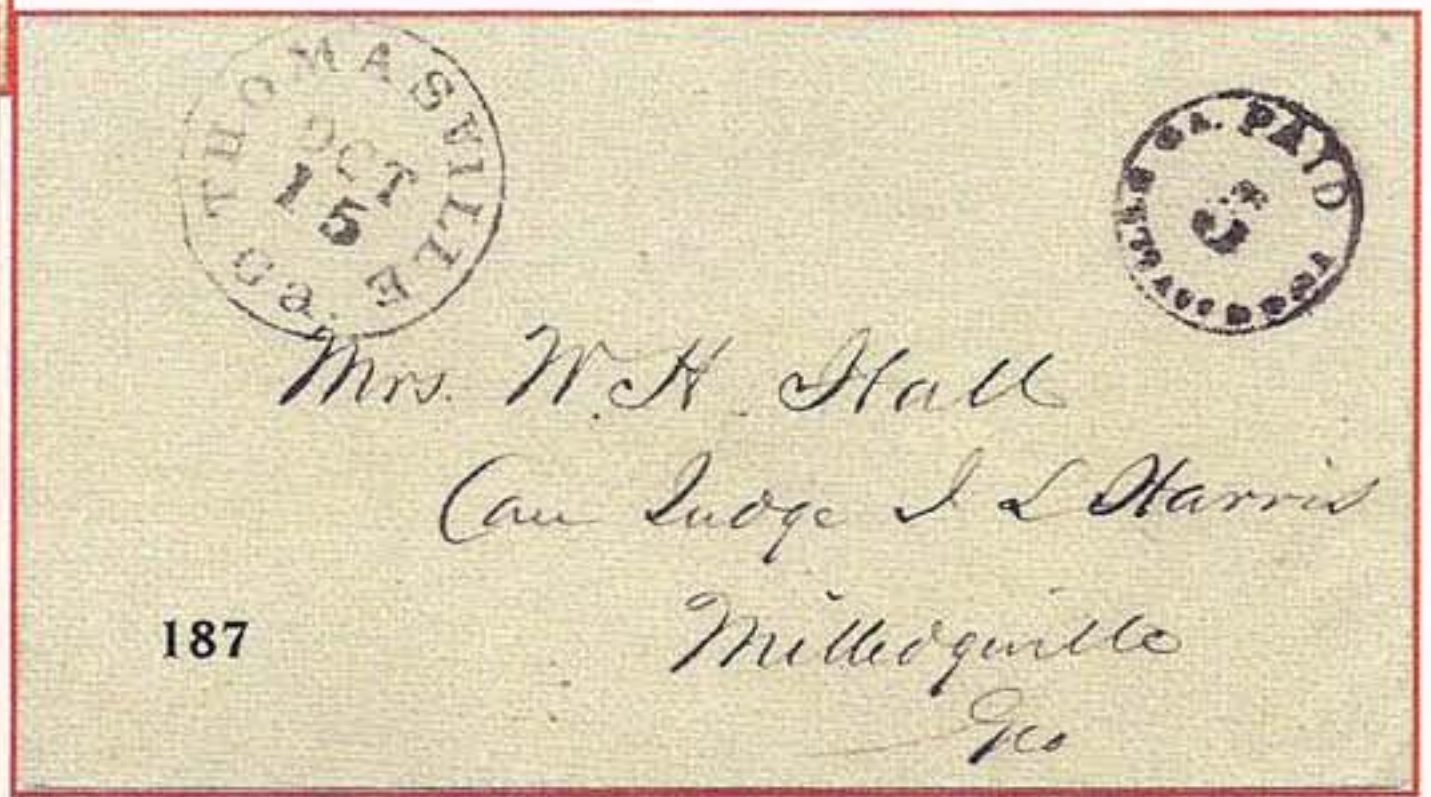 THOMASVILLE Ga.
OCT
15
PAID
5
GA.
Mrs. W. H. Hall
Care Judge I L Harris
Milledgeville
Geo
187